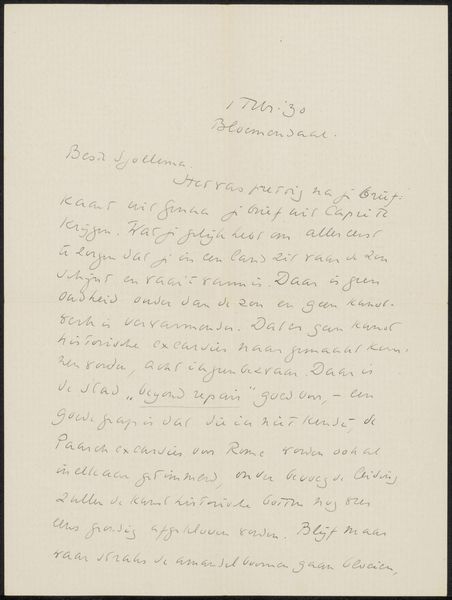 1 Febr. '30
Bloemendaal.
Beste Sjollema.
Het was prettig na je brief-
kaart uit Genua je brief uit Capri te
krijgen. Wat je gelijk hebt om allereerst
te zorgen dat je in een land zit waar de zon
schijnt en waar 't warm is. Daar is geen
oudheid ouder dan de zon en geen kunst-
werk is verwarmender. Dat er geen kunst
historische excursies naar gemaakt kun-
nen worden, acht ik geen bezwaar. Daar is
de stad „beyond repair" goed voor, – een
goede grap is dat die ik niet kende, de
Paasch excursies voor Rome worden ook al
in elkaar getimmerd, onder bevoegde leiding
zullen de kunsthistorische botten nog weer
eens grondig afgekloven worden. Blijf maar
waar straks de amandelboomen gaan bloeien,